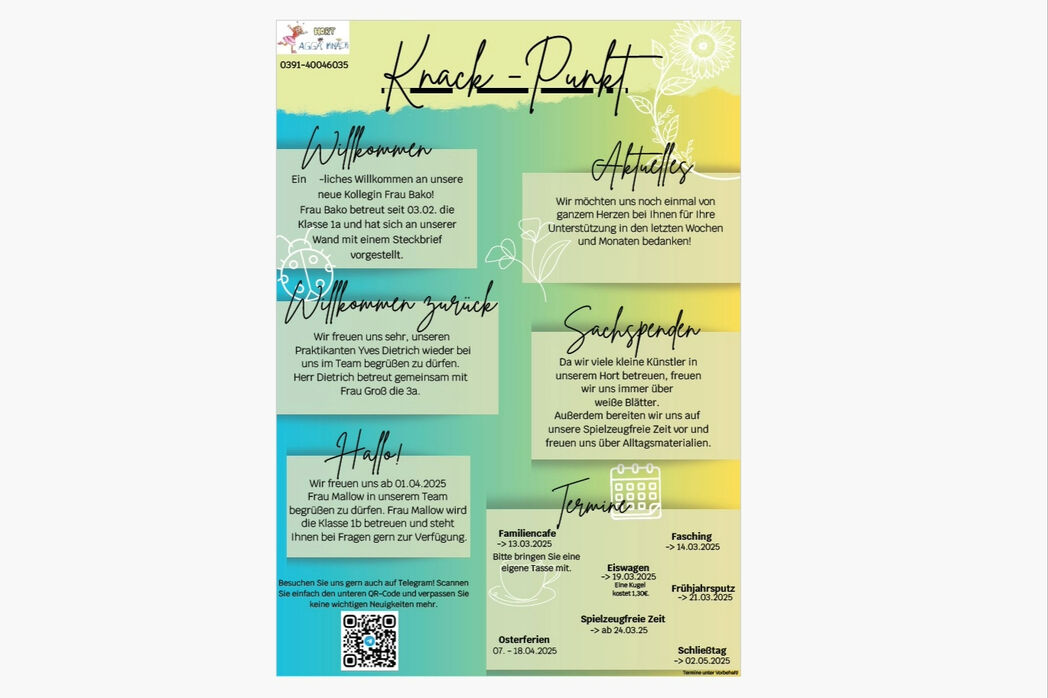 HORT
0391-40046035
Knack -Punkt
Willkommen
Ein -liches Willkommen an unsere
neue Kollegin Frau Bako!
Frau Bako betreut seit 03.02. die
Klasse 1a und hat sich an unserer
Wand mit einem Steckbrief
vorgestellt.
Willkommen zurück
Wir freuen uns sehr, unseren
Praktikanten Yves Dietrich wieder bei
uns im Team begrüßen zu dürfen.
Herr Dietrich betreut gemeinsam mit
Frau Groß die 3a.
Hallo!
Wir freuen uns ab 01.04.2025
Frau Mallow in unserem Team
begrüßen zu dürfen. Frau Mallow wird
die Klasse 1b betreuen und steht
Ihnen bei Fragen gern zur Verfügung.
Besuchen Sie uns gern auch auf Telegram! Scannen
Sie einfach den unteren QR-Code und verpassen Sie
keine wichtigen Neuigkeiten mehr.
Aktuelles
Wir möchten uns noch einmal von
ganzem Herzen bei Ihnen für Ihre
Unterstützung in den letzten Wochen
und Monaten bedanken!
Sachspenden
Da wir viele kleine Künstler in
unserem Hort betreuen, freuen
wir uns immer über
weiße Blätter.
Außerdem bereiten wir uns auf
unsere Spielzeugfreie Zeit vor und
freuen uns über Alltagsmaterialien.
Termine
Familiencafe
-> 13.03.2025
Bitte bringen Sie eine
eigene Tasse mit.
Fasching
-> 14.03.2025
Eiswagen
-> 19.03.2025
Eine Kugel
kostet 1,30€.
Frühjahrsputz
-> 21.03.2025
Spielzeugfreie Zeit
-> ab 24.03.25
Osterferien
07. - 18.04.2025
Schließtag
-> 02.05.2025
Termine unter Vorbehalt!